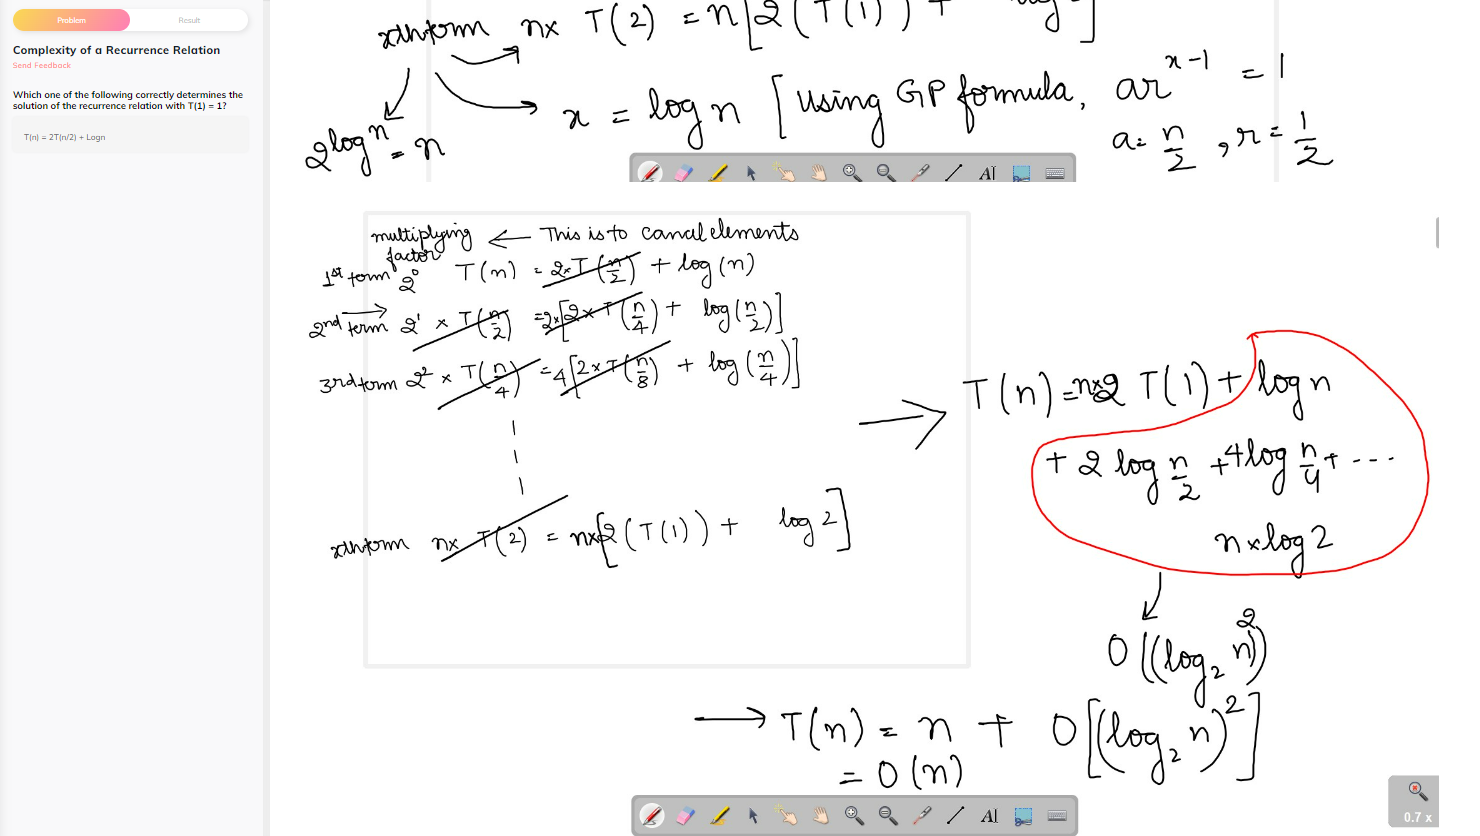 Problem
Result
Complexity of a Recurrence Relation
Send Feedback
Which one of the following correctly determines the
solution of the recurrence relation with T(1) = 1?
T(n) = 2T(n/2) + Logn
xth term nx T(2) = n[2(T(1)) +
x = log n [using GP formula, ar^(x-1) = 1
a = n/2, r = 1/2
2^(log n) = n
AI
multiplying factor ← This is to cancel elements
1st term 2^0 T(n) = 2×T(n/2) + log(n)
2nd term 2^1 × T(n/2) = 2×[2×T(n/4) + log(n/2)]
3rd term 2^2 × T(n/4) = 4[2×T(n/8) + log(n/4)]
xth term nx T(2) = nx[2(T(1)) + log 2]
→ T(n) = n×2 T(1) + log n
+ 2 log n/2 + 4 log n/4 + ---
n×log 2
O((log₂ n)^2)
→ T(n) = n + O[(log₂ n)^2]
= O(n)
AI
0.7 x